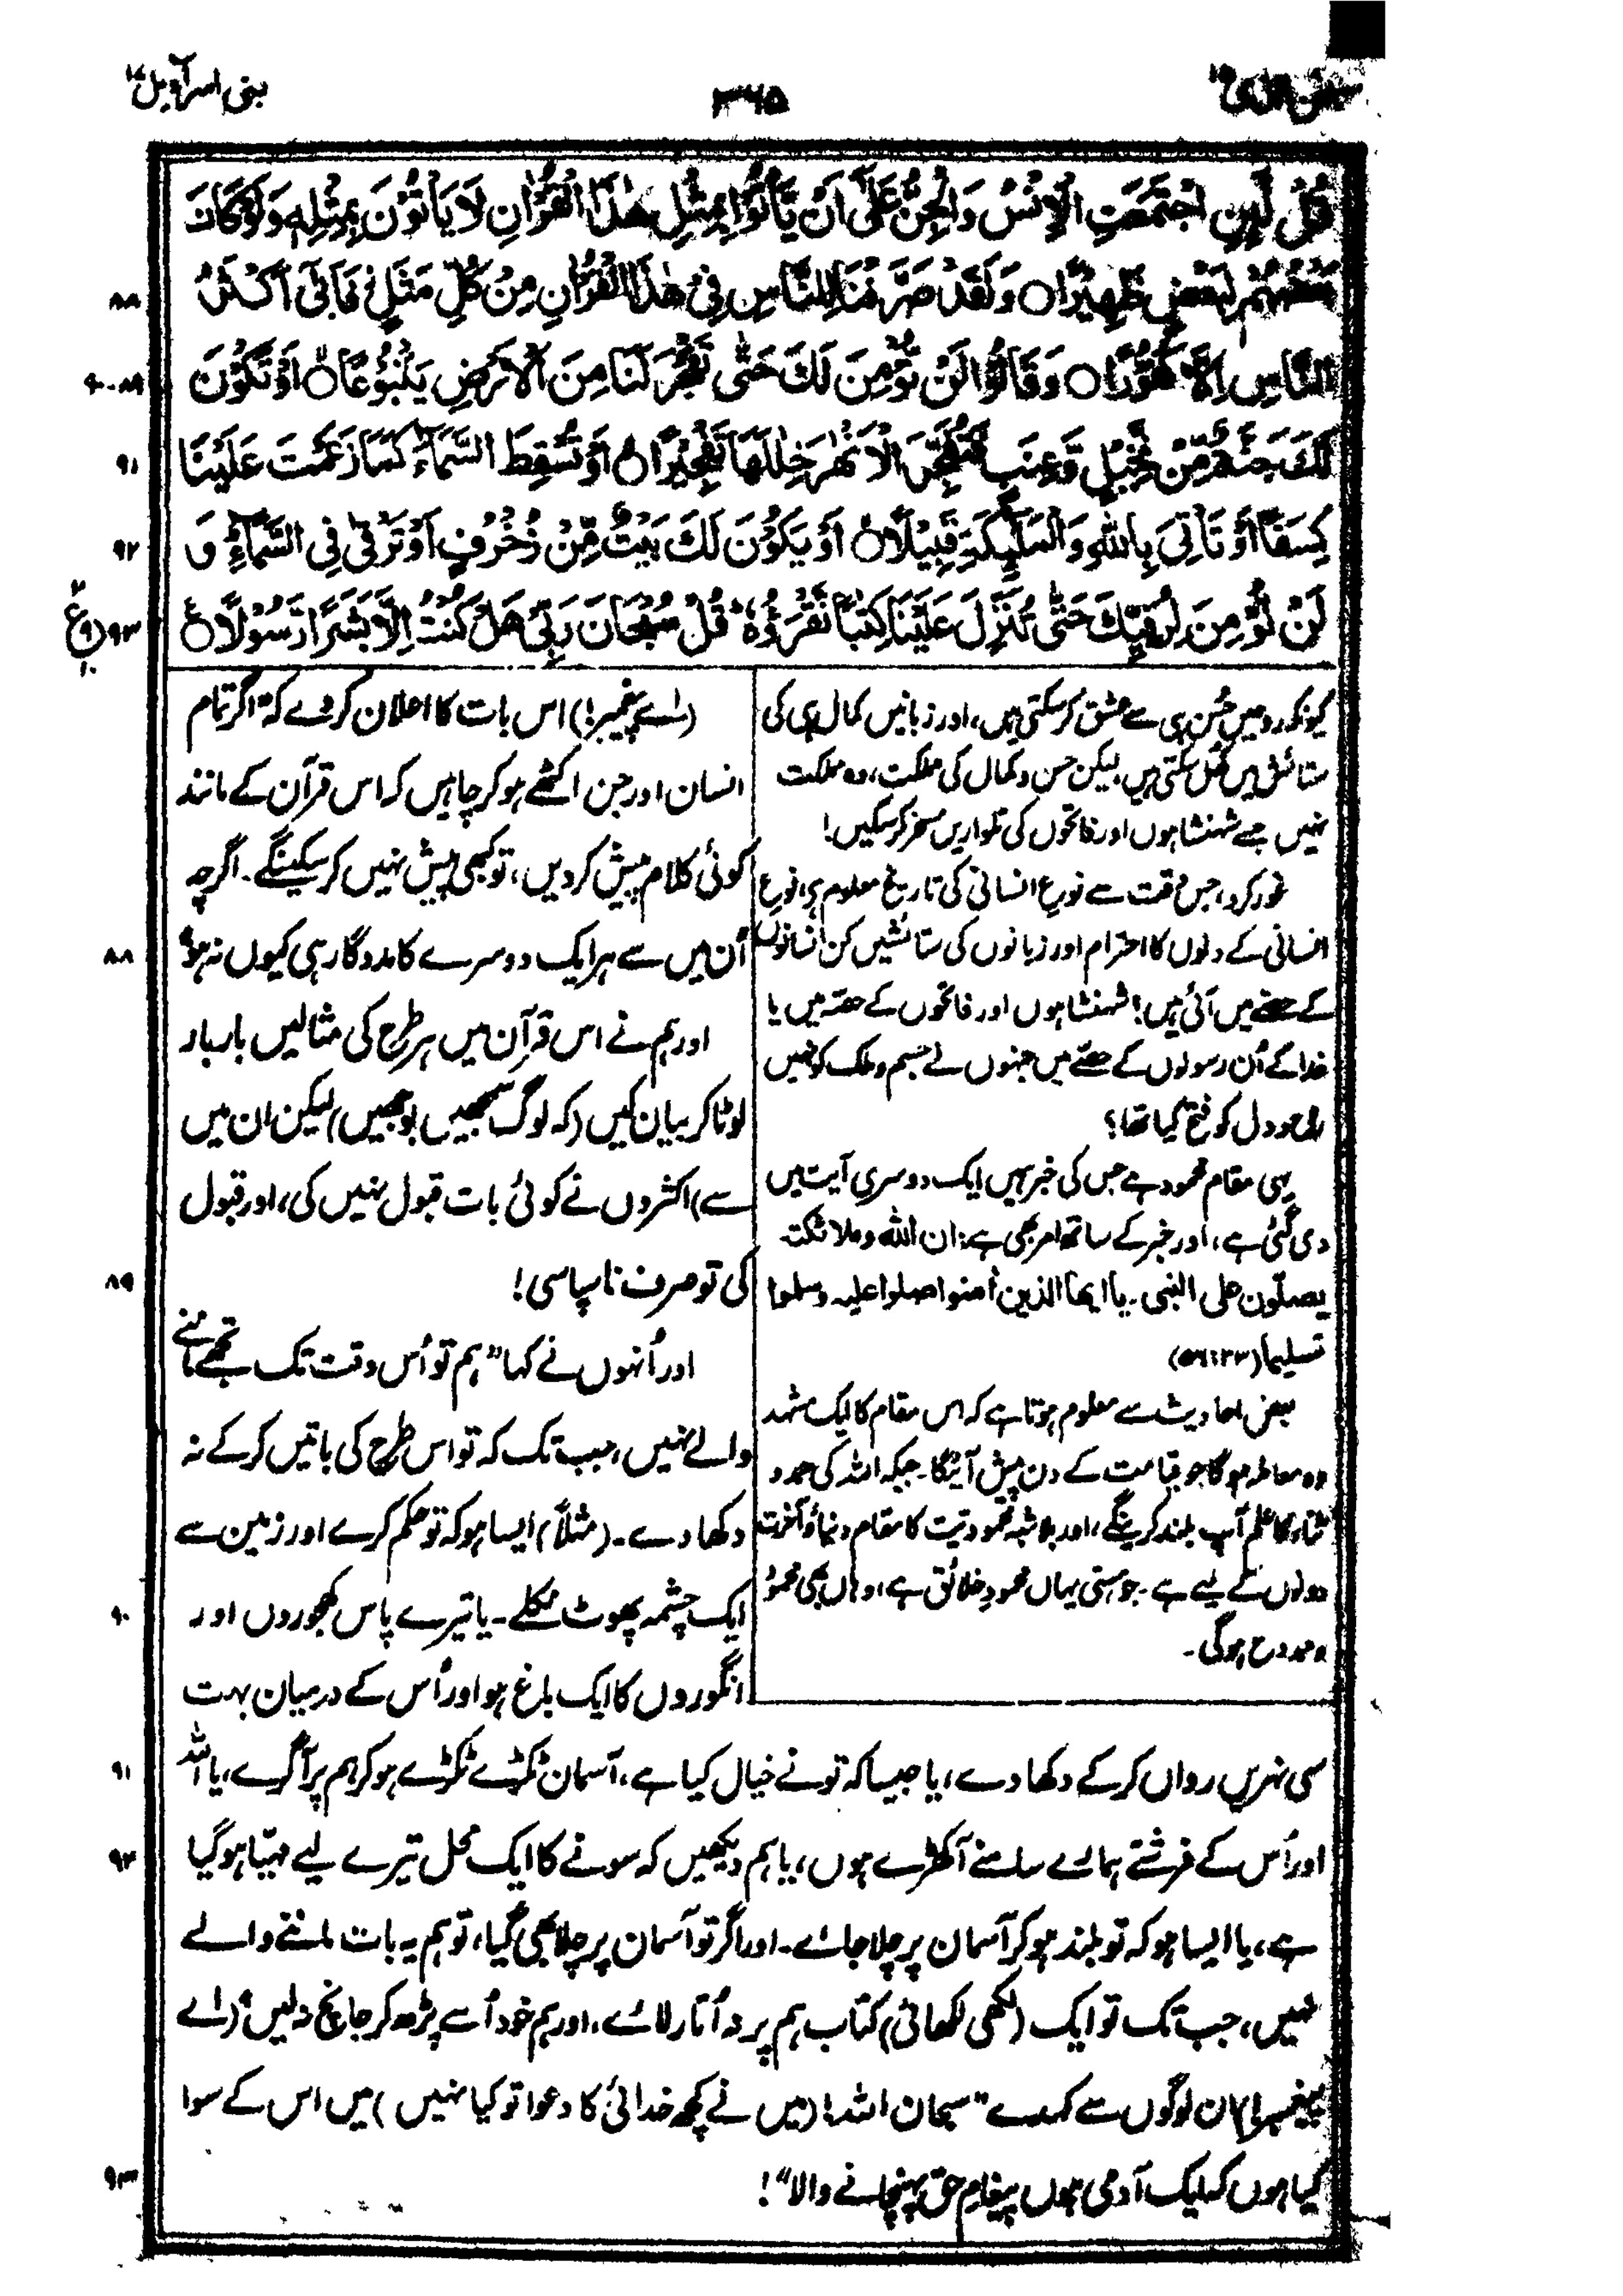 سبحٰن الذی ۱۵
۳۶۵
بنی اسرآءیل ۱۷
قُلْ لَّئِنِ اجْتَمَعَتِ الْاِنْسُ وَالْجِنُّ عَلٰٓى اَنْ يَّاْتُوْا بِمِثْلِ هٰذَا الْقُرْاٰنِ لَا يَاْتُوْنَ بِمِثْلِهٖ وَلَوْ كَانَ
بَعْضُهُمْ لِبَعْضٍ ظَهِيْرًا ○ وَلَقَدْ صَرَّفْنَا لِلنَّاسِ فِيْ هٰذَا الْقُرْاٰنِ مِنْ كُلِّ مَثَلٍ فَاَبٰٓى اَكْثَرُ ۸۸
النَّاسِ اِلَّا كُفُوْرًا ○ وَقَالُوْا لَنْ نُّؤْمِنَ لَكَ حَتّٰى تَفْجُرَ لَنَا مِنَ الْاَرْضِ يَنْۢبُوْعًا ○ اَوْ تَكُوْنَ ۸۹-۹۰
لَكَ جَنَّةٌ مِّنْ نَّخِيْلٍ وَّعِنَبٍ فَتُفَجِّرَ الْاَنْهٰرَ خِلٰلَهَا تَفْجِيْرًا ○ اَوْ تُسْقِطَ السَّمَآءَ كَمَا زَعَمْتَ عَلَيْنَا ۹۱
كِسَفًا اَوْ تَاْتِيَ بِاللّٰهِ وَالْمَلٰٓئِكَةِ قَبِيْلًا ○ اَوْ يَكُوْنَ لَكَ بَيْتٌ مِّنْ زُخْرُفٍ اَوْ تَرْقٰى فِي السَّمَآءِ ؕ وَ ۹۲
لَنْ نُّؤْمِنَ لِرُقِيِّكَ حَتّٰى تُنَزِّلَ عَلَيْنَا كِتٰبًا نَّقْرَؤُهٗ ؕ قُلْ سُبْحَانَ رَبِّيْ هَلْ كُنْتُ اِلَّا بَشَرًا رَّسُوْلًا ○ ۹۳
کیونکہ روحیں حُسن ہی سے عشق کر سکتی ہیں، اور زبانیں کمال ہی کی
ستائش میں کھل سکتی ہیں لیکن حسن و کمال کی مملکت، وہ مملکت
نہیں جسے شہنشاہوں اور فاتحوں کی تلواریں مسخر کر سکیں!
غور کرو، جس وقت سے نوع انسانی کی تاریخ معلوم ہے، نوع
انسانی کے دلوں کا احترام اور زبانوں کی ستائشیں کن انسانوں
کے حصے میں آئی ہیں؟ شہنشاہوں اور فاتحوں کے حصہ میں یا
خدا کے اُن رسولوں کے حصے میں جنہوں نے جسم و ملک کو نہیں
روح و دل کو فتح کیا تھا؟
یہی مقام محمود ہے جس کی خبر ہمیں ایک دوسری آیت میں
دی گئی ہے، اور خبر کے ساتھ امر بھی ہے: ان اللہ وملائکتہ
یصلّون علی النبی۔ یا ایھا الذین اٰمنوا صلوا علیہ وسلموا
تسلیما (۳۳:۵۶)
بعض احادیث سے معلوم ہوتا ہے کہ اس مقام کا ایک مشہد
وہ معاملہ ہوگا جو قیامت کے دن پیش آئیگا۔ جبکہ اللہ کی حمد و
ثناء کا علم آپ بلند کرینگے، اور بلا شبہ محمودیت کا مقام دنیا و آخرت
دونوں کے لیے ہے۔ جو ہستی یہاں محمود خلائق ہے، وہاں بھی محمود
و ممدوح ہوگی۔
(اے پیغمبر!) اس بات کا اعلان کر دے کہ "اگر تمام
انسان اور جن اکٹھے ہو کر چاہیں کہ اس قرآن کے مانند
کوئی کلام پیش کر دیں، تو کبھی پیش نہیں کر سکینگے۔ اگرچہ
اُن میں سے ہر ایک دوسرے کا مددگار ہی کیوں نہ ہو" ۸۸
اور ہم نے اس قرآن میں ہر طرح کی مثالیں بار بار
لوٹا کر بیان کیں (کہ لوگ سمجھیں بوجھیں) لیکن ان میں
سے) اکثروں نے کوئی بات قبول نہیں کی، اور قبول
کی تو صرف ناسپاسی! ۸۹
اور اُنہوں نے کہا "ہم تو اُس وقت تک تجھے ماننے
والے نہیں، جب تک کہ تو اس طرح کی باتیں کر کے نہ
دکھا دے۔ (مثلاً) ایسا ہو کہ تو حکم کرے اور زمین سے
ایک چشمہ پھوٹ نکلے۔ یا تیرے پاس کھجوروں اور ۹۰
انگوروں کا ایک باغ ہو اور اُس کے درمیان بہت
سی نہریں رواں کر کے دکھا دے، یا جیسا کہ تو نے خیال کیا ہے، آسمان ٹکڑے ٹکڑے ہو کر ہم پر آ گرے، یا اللہ ۹۱
اور اُس کے فرشتے ہمارے سامنے آ کھڑے ہوں، یا ہم دیکھیں کہ سونے کا ایک محل تیرے لیے مہیّا ہو گیا ۹۲
ہے، یا ایسا ہو کہ تو بلند ہو کر آسمان پر چلا جائے۔ اور اگر تو آسمان پر چلا بھی گیا، تو ہم یہ بات ماننے والے
نہیں، جب تک تو ایک (لکھی لکھائی) کتاب ہم پر نہ اُتار لائے، اور ہم خود اُسے پڑھ کر جانچ نہ لیں" (اے
پیغمبر!) ان لوگوں سے کہدے "سبحان اللہ! (میں نے کچھ خدائی کا دعوا تو کیا نہیں) میں اس کے سوا
کیا ہوں کہ ایک آدمی ہوں پیغامِ حق پہنچانے والا"! ۹۳